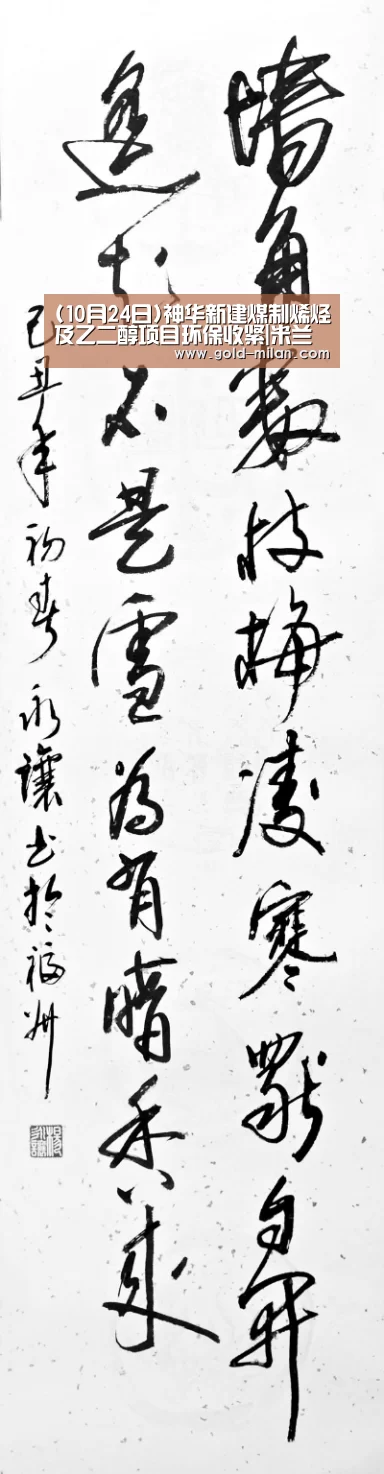 墙角數枝梅凌寒獨自開
遙知不是雪為有暗香來
己丑年初春永讓书於福州
(10月24日)神华新建煤制烯烃
及乙二醇项目环保收紧|米兰
www.gold-milan.com